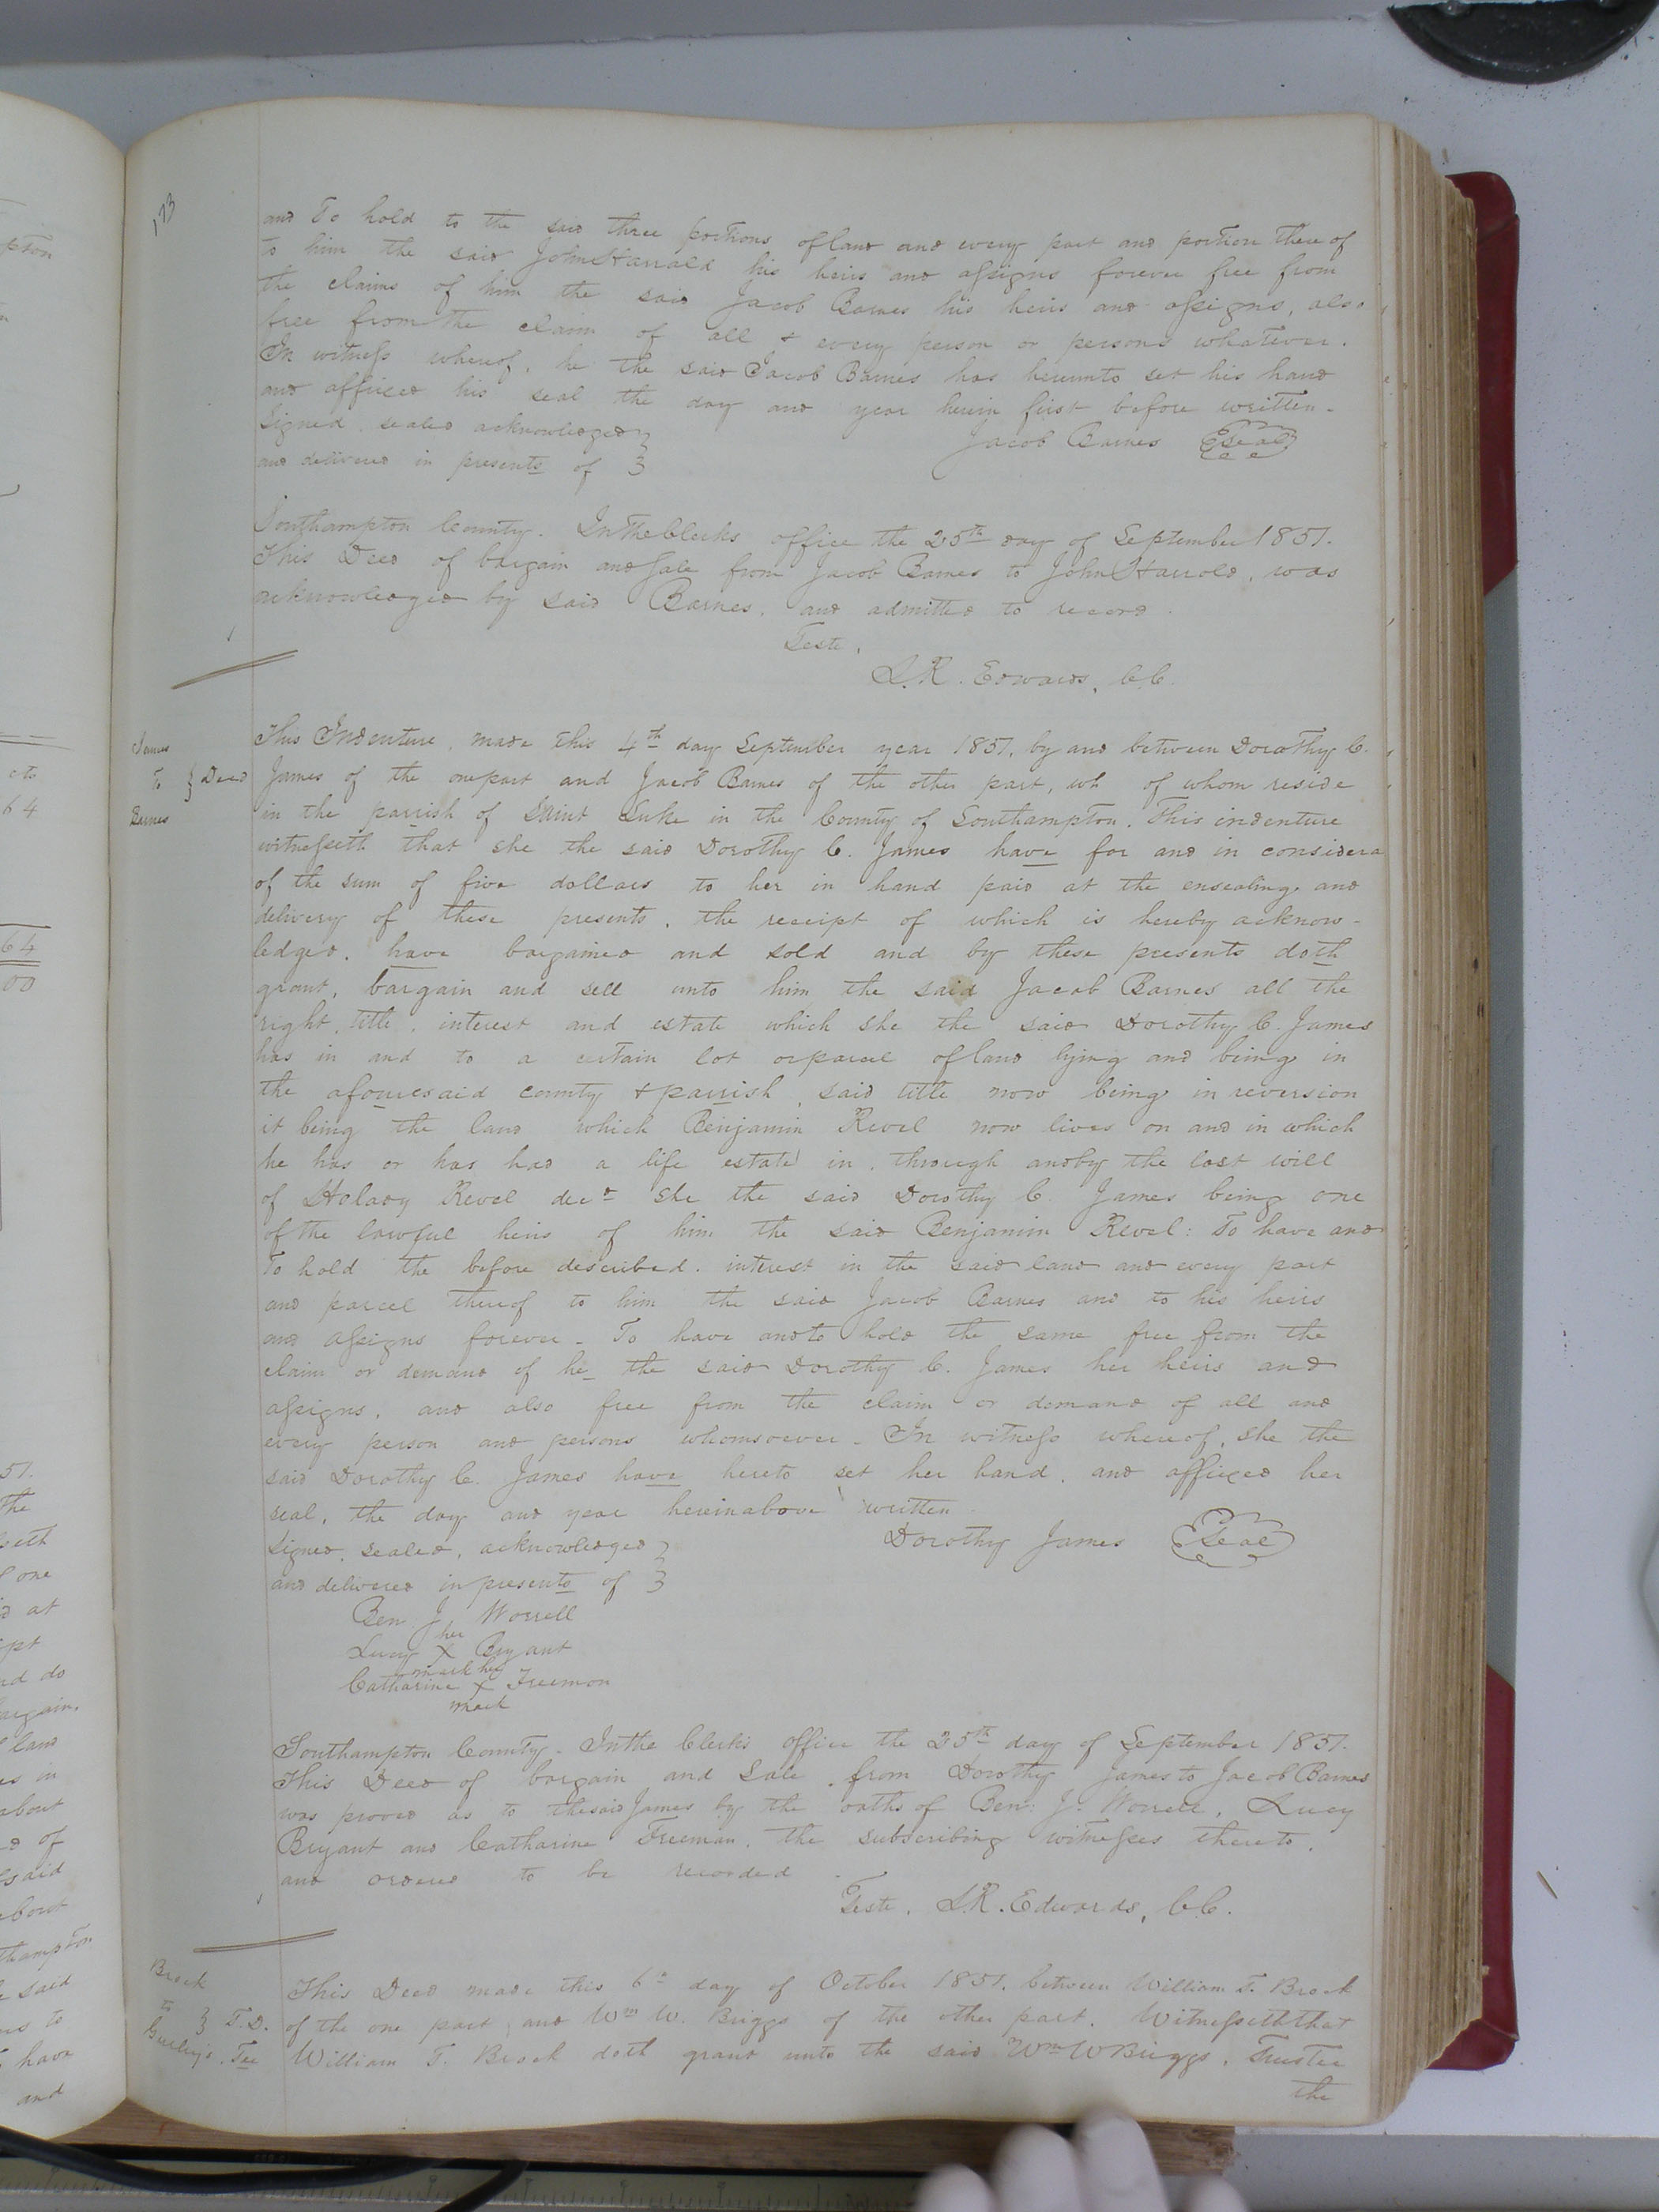 173
and To hold to the said three portions of land and every part and portion there of
to him the said John Harrald his heirs and assigns forever free from
the claims of him the said Jacob Barnes his heirs and assigns, also
free from the claim of all & every person or persons whatever.
In witness whereof, he the said Jacob Barnes has hereunto set his hand
and affixed his seal the day and year herein first before written.
Signed, sealed acknowledged } Jacob Barnes Seal
and delivered in presents of }
Southampton County. In the Clerks office the 25th day of September 1851.
This Deed of bargain and Sale from Jacob Barnes to John Harrold, was
acknowledged by said Barnes, and admitted to record.
Teste,
L.R. Edwards, C.C.
James
To } Deed
Barnes
This Indenture, made this 4th day September year 1851, by and between Dorothy C.
James of the one part and Jacob Barnes of the other part, wh of whom reside
in the parrish of Saint Luke in the County of Southampton. This indenture
witnesseth that she the said Dorothy C. James have for and in considera
of the sum of five dollars to her in hand paid at the ensealing and
delivery of these presents, the receipt of which is hereby acknow-
ledged, have bargained and sold and by these presents doth
grant, bargain and sell unto him the said Jacob Barnes all the
right, title, interest and estate which she the said Dorothy C. James
has in and to a certain lot or parcel of land lying and being in
the afouresaid county & parrish, said title now being in reversion
it being the land which Benjamin Revel now lives on and in which
he has or has had a life estate in, through and by the last will
of Holady Revel decd She the said Dorothy C. James being one
of the lawful heirs of him the said Benjamin Revel: To have and
To hold the before described interest in the said land and every part
and parcel thereof to him the said Jacob Barnes and to his heirs
and assigns forever - To have and to hold the same free from the
claim or demand of he the said Dorothy C. James her heirs and
assigns, and also free from the claim or demand of all and
every person and persons whomsoever - In witness whereof, she the
said Dorothy C. James have hereto set her hand, and affixed her
seal, the day and year herein above written
Signed, sealed, acknowledged } Dorothy James Seal
and delivered in presents of }
Ben J. Worrell
her
Lucy X Bryant
mark her
Catharine X Freemon
mark
Southampton County. In the Clerks office the 25th day of September 1851.
This Deed of bargain and Sale from Dorothy James to Jacob Barnes
was proved as to the said James by the oaths of Ben: J. Worrell, Lucy
Bryant and Catharine Freeman, the subscribing witnesses thereto,
and ordered to be recorded.
Teste, L.R. Edwards, C.C.
Brock
to } T.D.
Tee
This Deed made this 6th day of October 1851, between William T. Brock
of the one part, and Wm W. Briggs of the other part. Witnesseth that
William T. Brock doth grant unto the said Wm W Briggs, Trustee
the